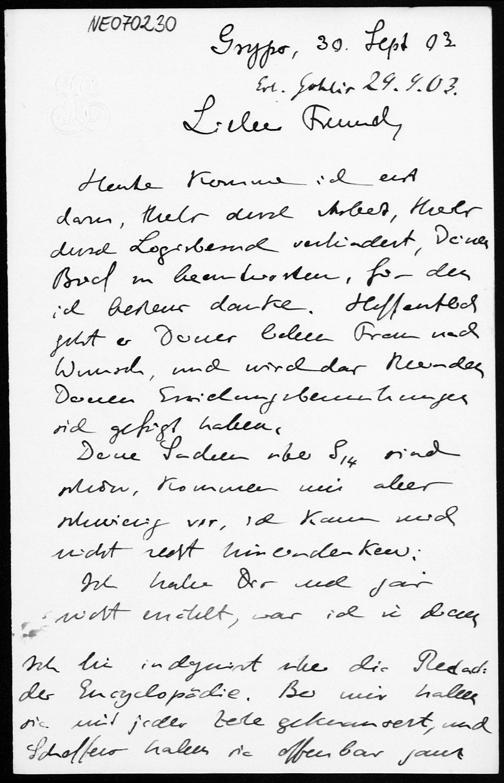 NE070230
Gryps, 30. Sept 03
Erl. 29.9.03.
Lieber Freund,
Heute komme ich erst
dazu, theils durch Arbeit, theils
durch Logirbesuch verhindert, Deinen
Brief zu beantworten, für den
ich bestens danke. Hoffentlich
geht es Deiner lieben Frau nach
Wunsch, und wird das
Deinen Erziehungsbemühungen
sich gefügt haben.
Deine Sachen über S14 sind
schön, kommen mir aber
schwierig vor, ich kann mich
nicht recht hineindenken.
Ich habe Dir noch gar
nicht erzählt, war ich in
Ich bin indignirt über die Redact.
der Encyclopädie. Bei mir haben
sie mit jeder Zeile geknausert, und
Scheffers haben sie offenbar ganz